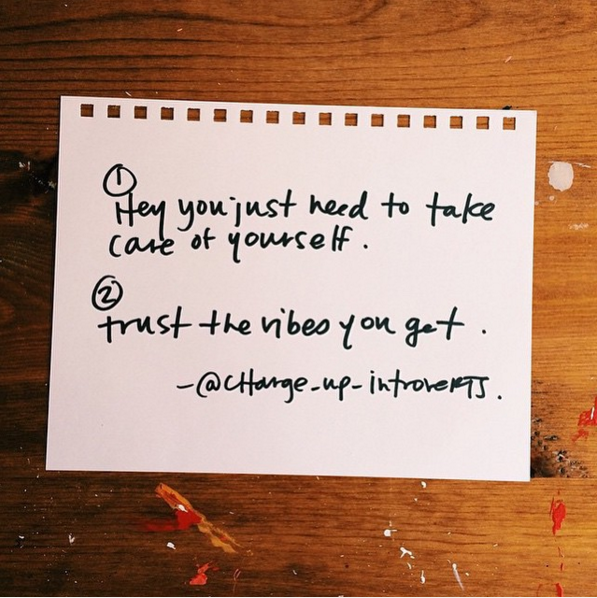 ①
Hey you just need to take
care of yourself.
②
trust the vibes you get.
-@CHarge_up_introveRTS.